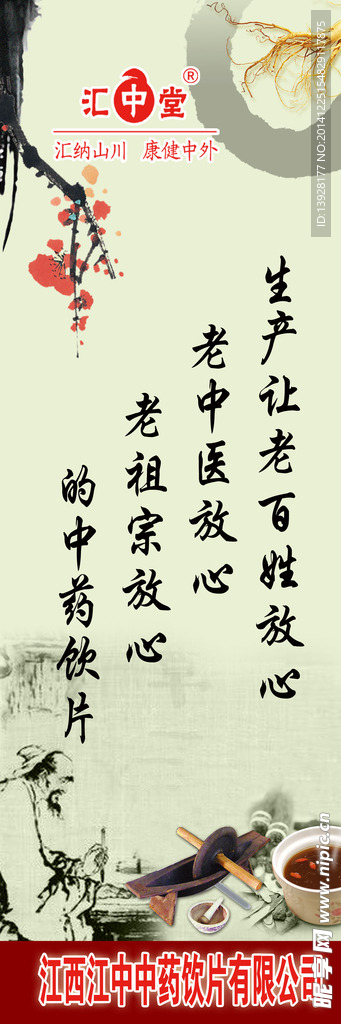 汇中堂®
汇纳山川 康健中外
生产让老百姓放心
老中医放心
老祖宗放心
的中药饮片
江西江中中药饮片有限公司
ID:13928177 NO:20141225154829117875
昵享网 www.nipic.cn